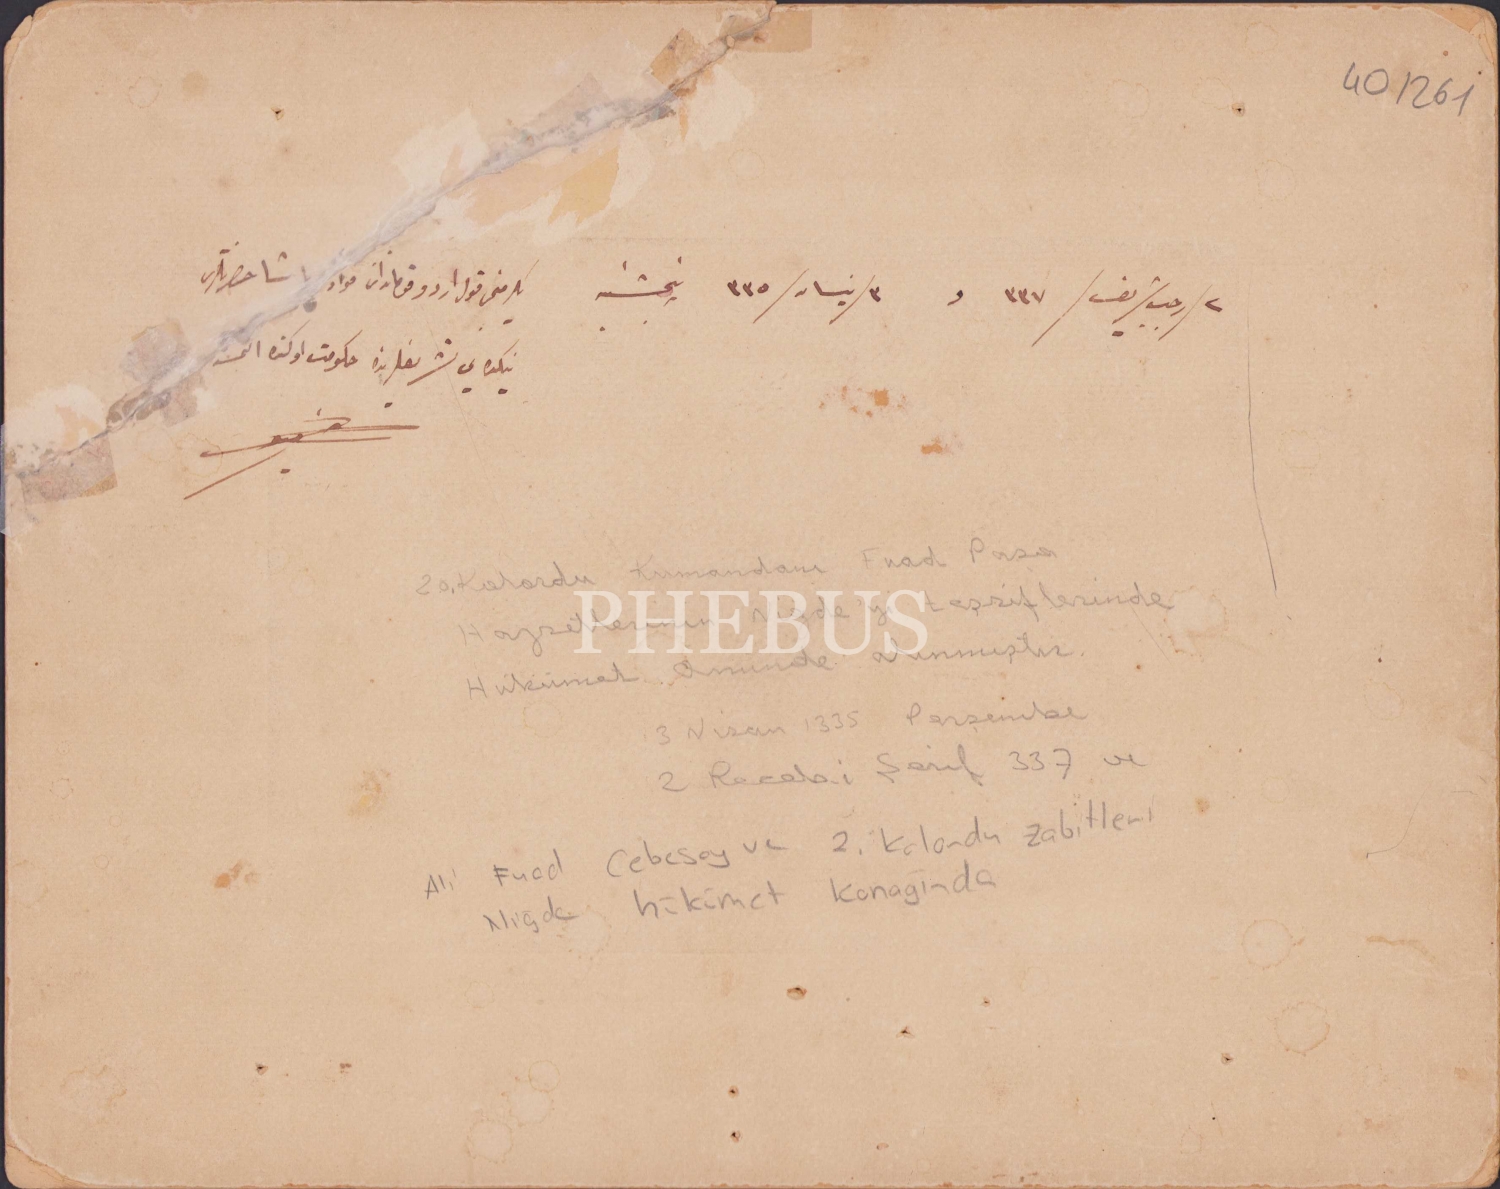 40/261
٢/رجب شريف/٣٣٧ و ٣/نيسان/٣٣٥ پنجشنبه
يكرمنجى قول اردو قوماندانى فواد پاشا حضرتلرى
نيكده يى تشريفلرنده حكومت اوكنده
20. Kolordu Kumandanı Fuad Paşa
Hazretlerinin Niğde'yi teşriflerinde
Hükümet Önünde alınmıştır.
3 Nisan 1335 Perşembe
2 Receb-i Şerif 337 ve
Ali Fuad Cebesoy ve 2. Kolordu zabitleri
Niğde hükümet konağında
PHEBUS